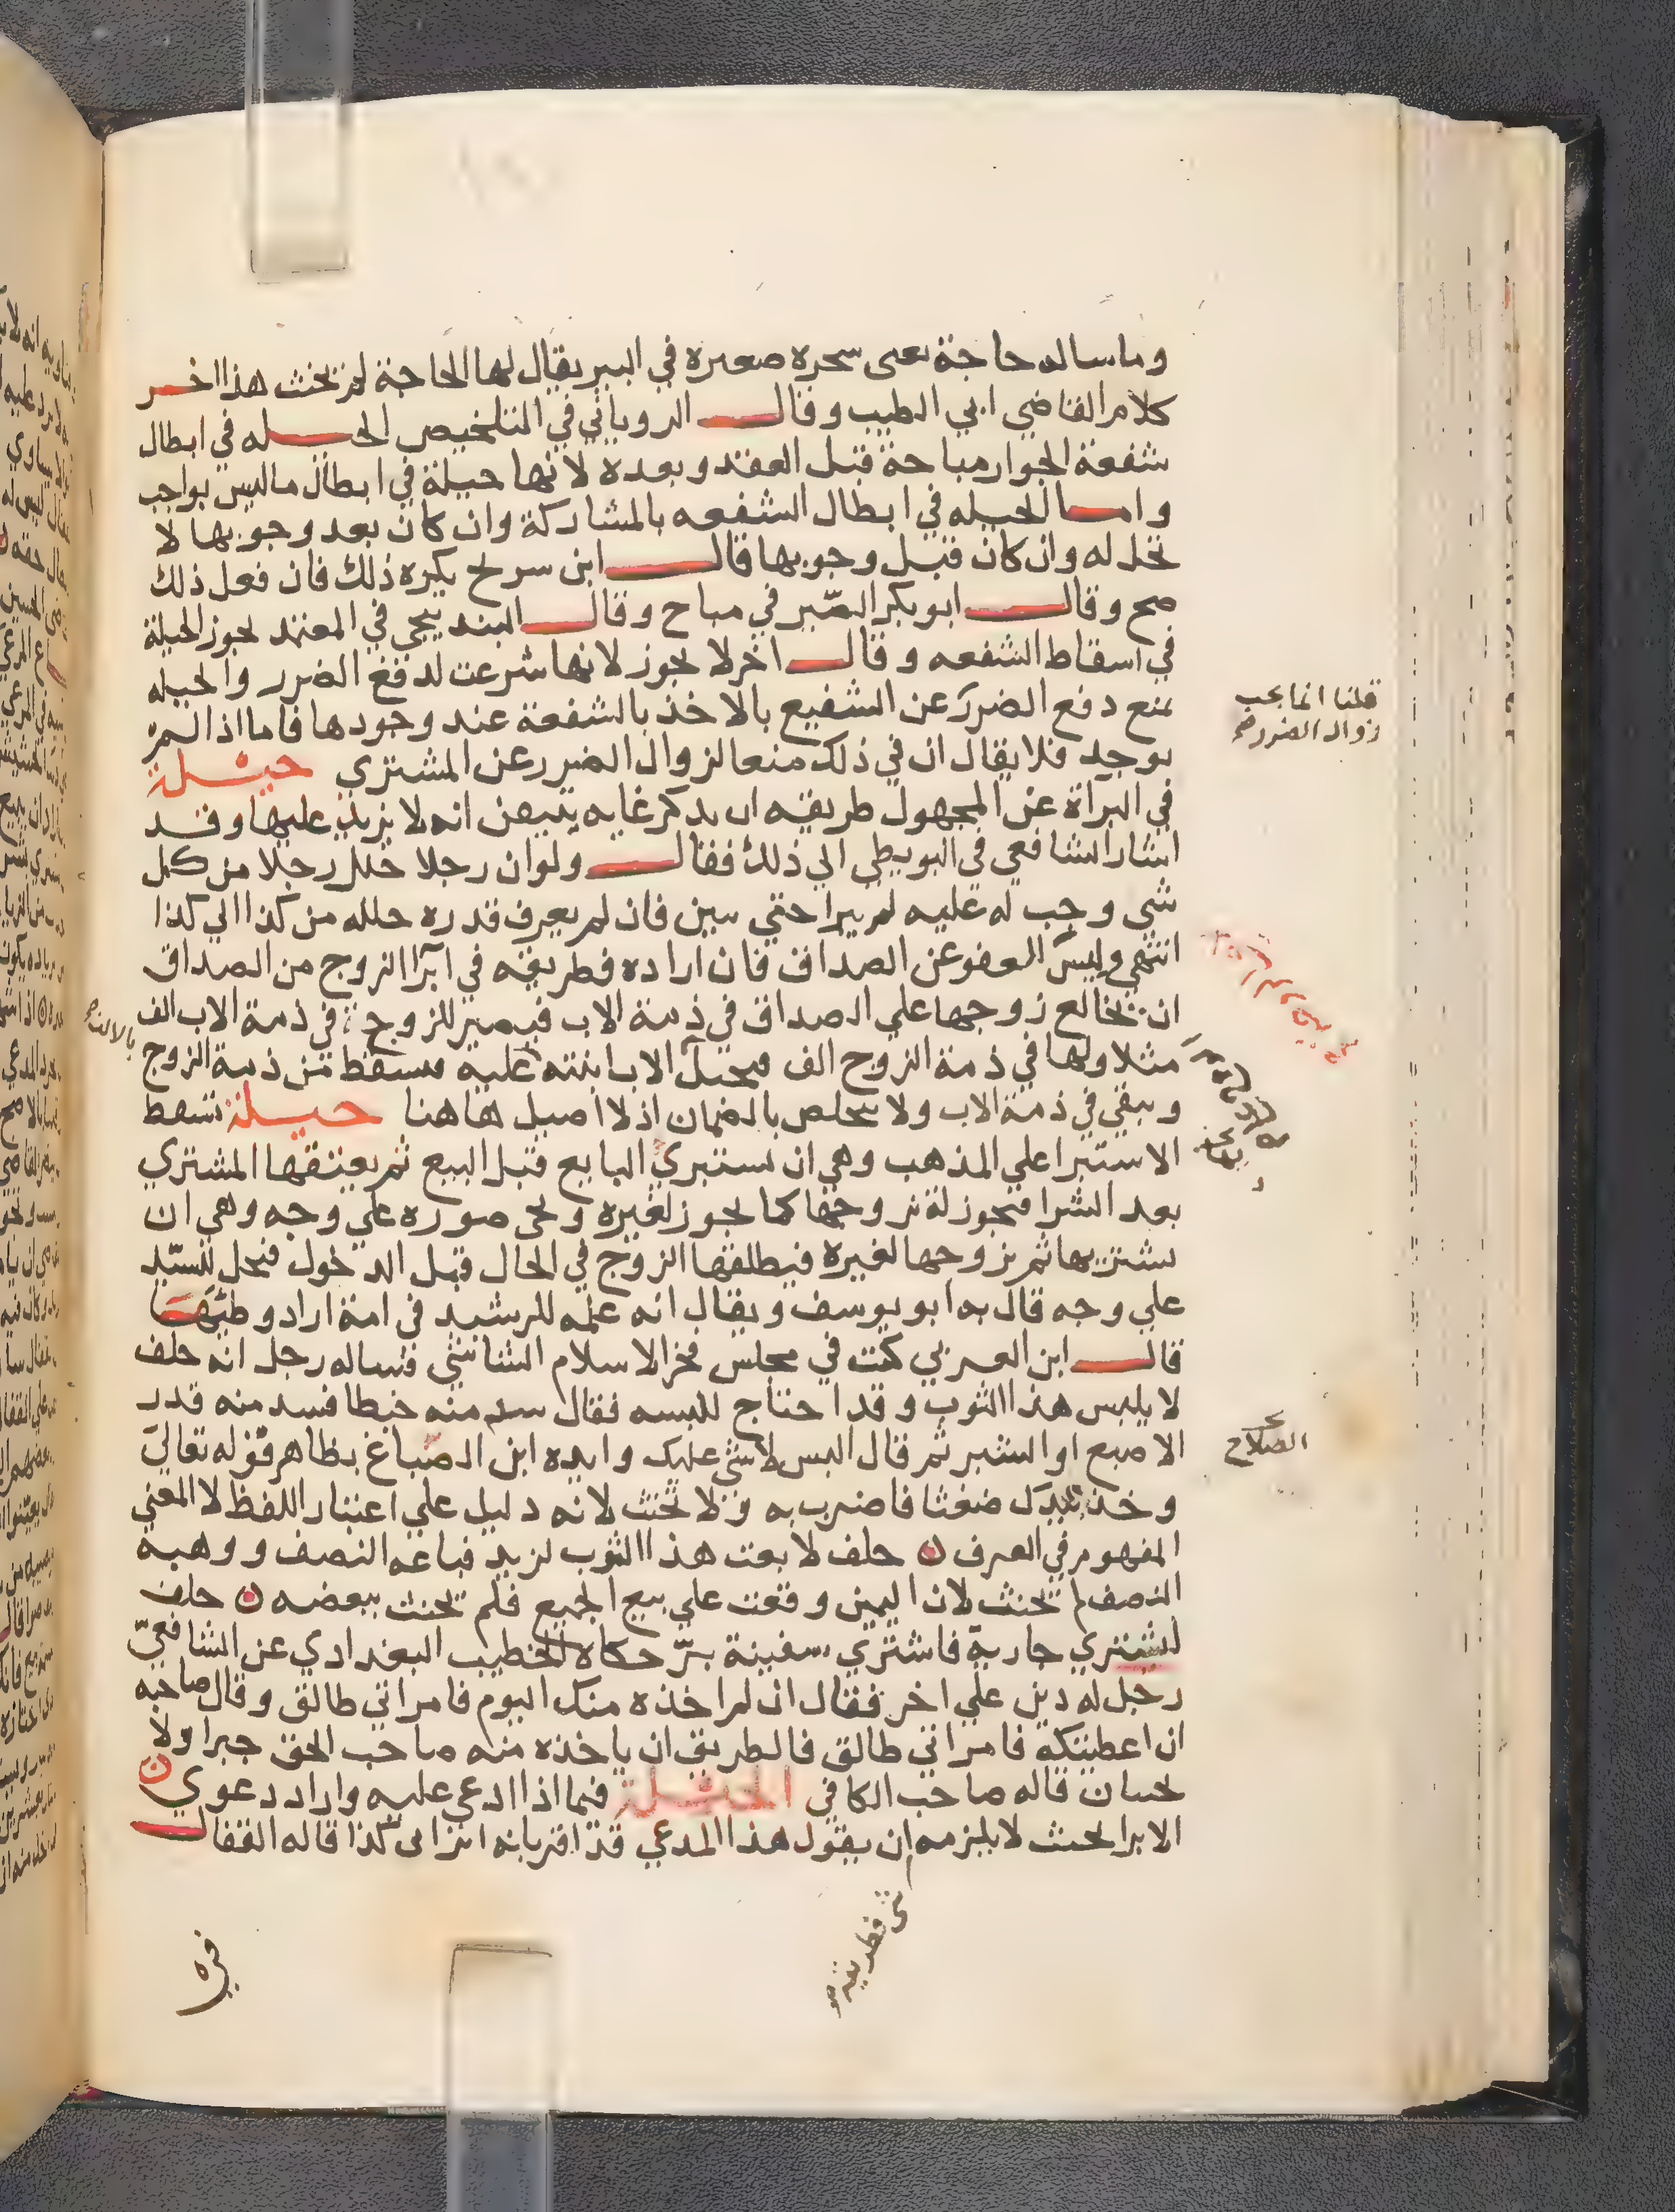 وما ساله حاجة يعني شجرة صغيرة في البير يقال لها الحاجة لم يحنث هذا اخر
كلام القاضي ابي الطيب وقال الروياني في التلخيص الحيله في ابطال
شفعة الجوار مباحة قبل العقد وبعده لانها حيلة في ابطال ما ليس بواجب
واما الحيله في ابطال الشفعه بالمشاركة وان كان بعد وجوبها لا
تحل له وان كان قبل وجوبها قال ابن سريج يكره ذلك فان فعل ذلك
صح وقال ابو بكر الصيرفي مباح وقال البندنيجي في المعتمد تجوز الحيلة
في اسقاط الشفعه وقال اخر لا يجوز لانها شرعت لدفع الضرر والحيله
تمنع دفع الضرر عن الشفيع بالاخذ بالشفعة عند وجودها فاما اذا لم
قلنا انما يجب
زوال الضرر صح
يوجد فلا يقال ان في ذلك منعا لزوال الضرر عن المشتري حيلة
في البراة عن المجهول طريقه ان يذكر غايه يتيقن انه لا يزيد عليها وقد
اشار الشافعي في البويطي الي ذلك فقال ولو ان رجلا حلل رجلا من كل
شي وجب له عليه لم يبرا حتي يبين فان لم يعرف قدره حلله من كذا الي كذا
انتهي وليس العفو عن الصداق فان اراده فطريقه في ابرا الزوج من الصداق
ان يخالع زوجها علي الصداق في ذمة الاب فيصير للزوج في ذمة الاب الف
مثلا ولها في ذمة الزوج الف فيحيل الاب ابنته عليه فيسقط من ذمة الزوج
ويبقي في ذمة الاب ولا يتخلص بالضمان اذ لا اصيل هاهنا حيلة تسقط
الاستبرا علي المذهب وهي ان يستبري البايع قبل البيع ثم يعتقها المشتري
بعد الشرا فيجوز له تزوجها كما يجوز لغيره وتجي صوره علي وجه وهي ان
يشتريها ثم يزوجها لغيره فيطلقها الزوج في الحال قبل الدخول فتحل للسيد
علي وجه قال به ابو يوسف ويقال انه علمه للرشيد في امة اراد وطيها
قال ابن العربي كنت في مجلس فخر الاسلام الشاشي فساله رجل انه حلف
لا يلبس هذا الثوب وقد احتاج للبسه فقال منه خيطا فسد منه قدر
الاصبع او الشبر ثم قال البس لا شي عليك وايده ابن الصباغ بظاهر قوله تعالي
الصلاح
وخذ بيدك ضغثا فاضرب به ولا تحنث لانه دليل علي اعتبار اللفظ لا المعني
المفهوم في العرف ن حلف لا بعت هذا الثوب لزيد فباعه النصف ووهبه
النصف لم يحنث لان اليمين وقعت علي بيع الجميع فلم يحنث ببعضه ن حلف
ليشتري جارية فاشتري سفينة برّ حكاه الخطيب البغدادي عن الشافعيّ
رجل له دين علي اخر فقال ان لم اخذه منك اليوم فامراتي طالق وقال صاحبه
ان اعطيتكه فامراتي طالق فالطريق ان ياخذه منه صاحب الحق جبرا ولا
يحنثان قاله صاحب الكافي الحيلة فيما اذا ادعي عليه واراد دعوي ن
الابرا بحيث لا يلزمه ان يقول هذا المدعي قد اقر بانه ابراني كذا قاله القفال
شي فطريقه صح